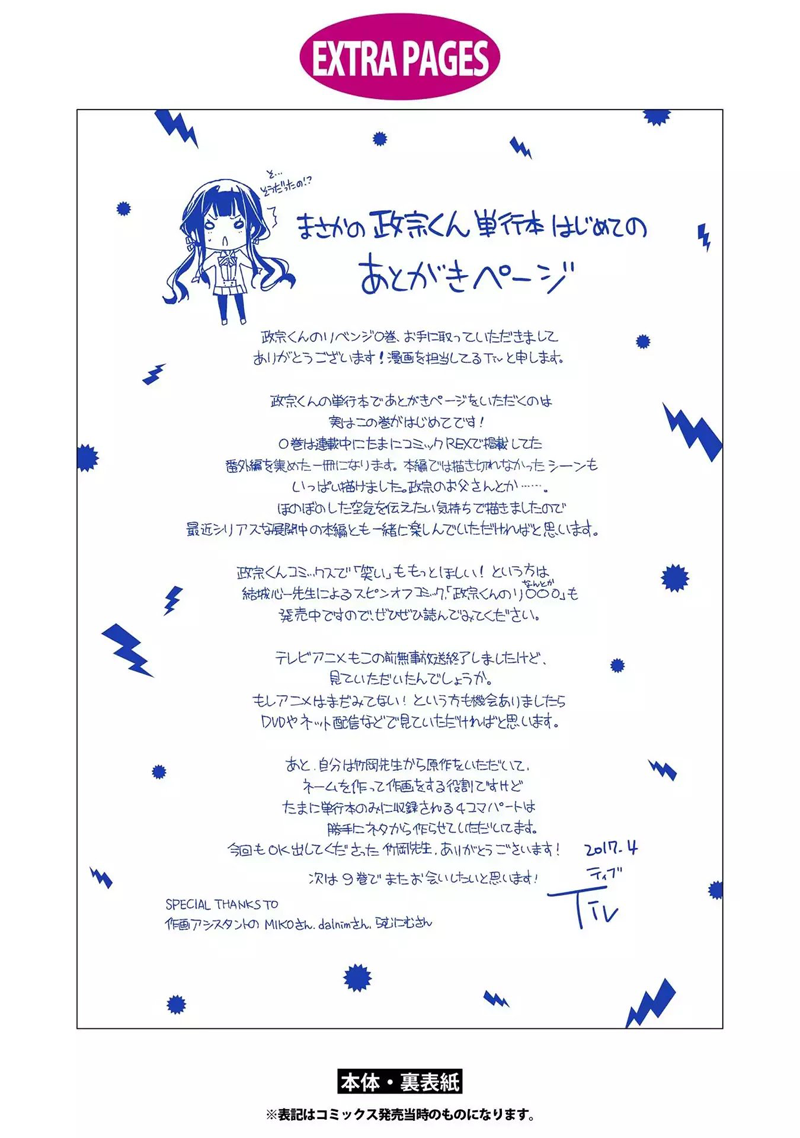 EXTRA PAGES
え…
そうだったの!?
まさかの政宗くん単行本はじめての
あとがきページ
政宗くんのリベンジ0巻、お手に取っていただきまして
ありがとうございます!漫画を担当してるTivと申します。
政宗くんの単行本であとがきページをいただくのは
実はこの巻がはじめてです!
0巻は連載中にたまにコミックREXで掲載してた
番外編を集めた一冊になります。本編では描き切れなかったシーンも
いっぱい描けました。政宗のお父さんとか……。
ほのぼのした空気を伝えたい気持ちで描きましたので
最近シリアスな展開中の本編とも一緒に楽しんでいただければと思います。
政宗くんコミックスで「笑い」ももっとほしい!という方は
結城心一先生によるスピンオフコミック、「政宗くんのリ○○○」も
なんとか
発売中ですので、ぜひぜひ読んでみてください。
テレビアニメもこの前無事放送終了しましたけど、
見ていただいたんでしょうか。
もしアニメはまだみてない!という方も機会ありましたら
DVDやネット配信などで見ていただければと思います。
あと、自分は竹岡先生から原作をいただいて、
ネームを作って作画をする役割ですけど
たまに単行本のみに収録される4コマパートは
勝手にネタから作らせていただいてます。
今回もOK出してくださった竹岡先生、ありがとうございます!
次は9巻でまたお会いしたいと思います!
2017.4
ティブ
Tiv
SPECIAL THANKS TO
作画アシスタントの MIKOさん、dalnimさん、らむにむさん
本体・裏表紙
※表記はコミックス発売当時のものになります。